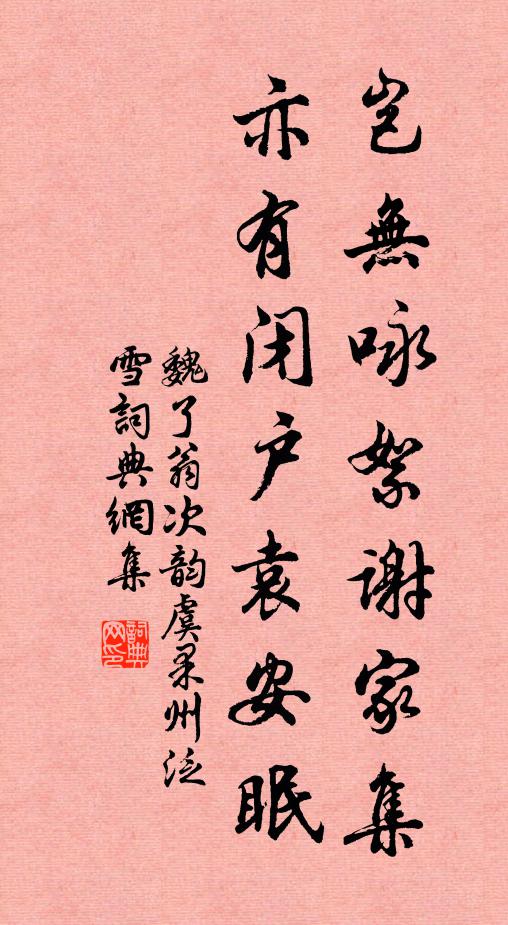 岂無咏絮謝家集
亦有闭户袁安眠
魏了翁次韵虞果州泛
雪詞典網集
詞典
网印